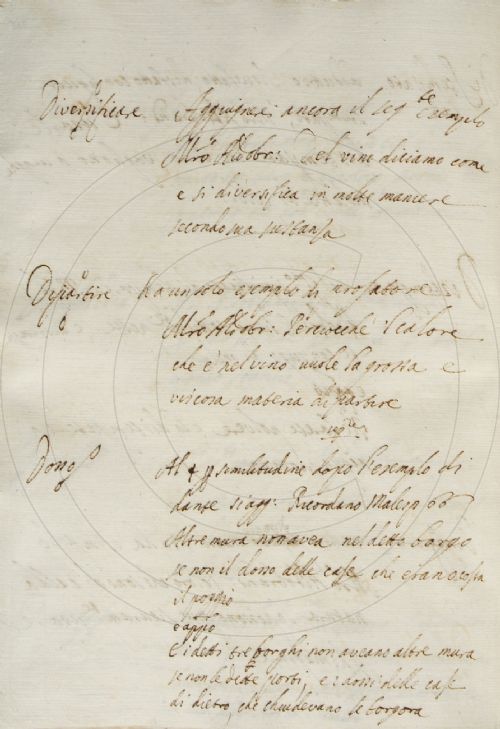 Diversificare Aggiugnersi ancora il seg.te esemplo
M.ro Aldobr: Del vino diciamo come
e si diversifica in molte maniere
secondo sua sustanza
Dipartire ha un solo esemplo di prosatore
M.ro Aldobr: Perciocche 'l calore
che è nel vino vuole la grossa e
viscosa materia dipartire
Dosso Al § p similitudine dopo l'esemplo di
Dante si agg: Ricordano Malesp. 66
Altre mura non avea nel detto borgo
se non il dosso delle case che eran costa
il poggio
E appo
E i detti tre borghi non aveano altre mura
se non le dette porti, e i dossi delle case
di dietro, che chiudevano le borgora